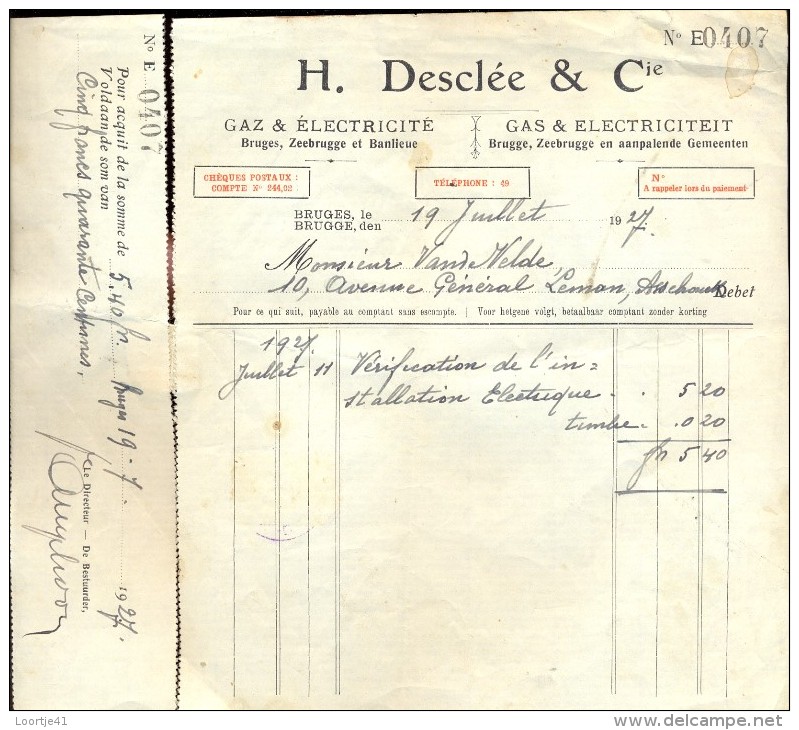 Nº E 0407
Pour acquit de la somme de 5.40 fr.
Voldaan de som van
Cinq francs quarante Centimes,
Bruges 19 - 7 - 1927.
Le Directeur — De Bestuurder,
Nº E0407
H. Desclée & Cie
GAZ & ÉLECTRICITÉ
Bruges, Zeebrugge et Banlieue
GAS & ELECTRICITEIT
Brugge, Zeebrugge en aanpalende Gemeenten
CHÈQUES POSTAUX :
COMPTE Nº 244,02
TÉLÉPHONE : 49
Nº
A rappeler lors du paiement
BRUGES, le
BRUGGE, den
19 Juillet 1927.
Monsieur Vande Velde,
10, Avenue Général Leman, Assebrouck
Debet
Pour ce qui suit, payable au comptant sans escompte. | Voor hetgene volgt, betaalbaar comptant zonder korting
1927.
Juillet 11 Vérification de l'in=
stallation Electrique . . 5 20
timbre . . 0 20
fr 5 40
Loortje41
delcampe.net